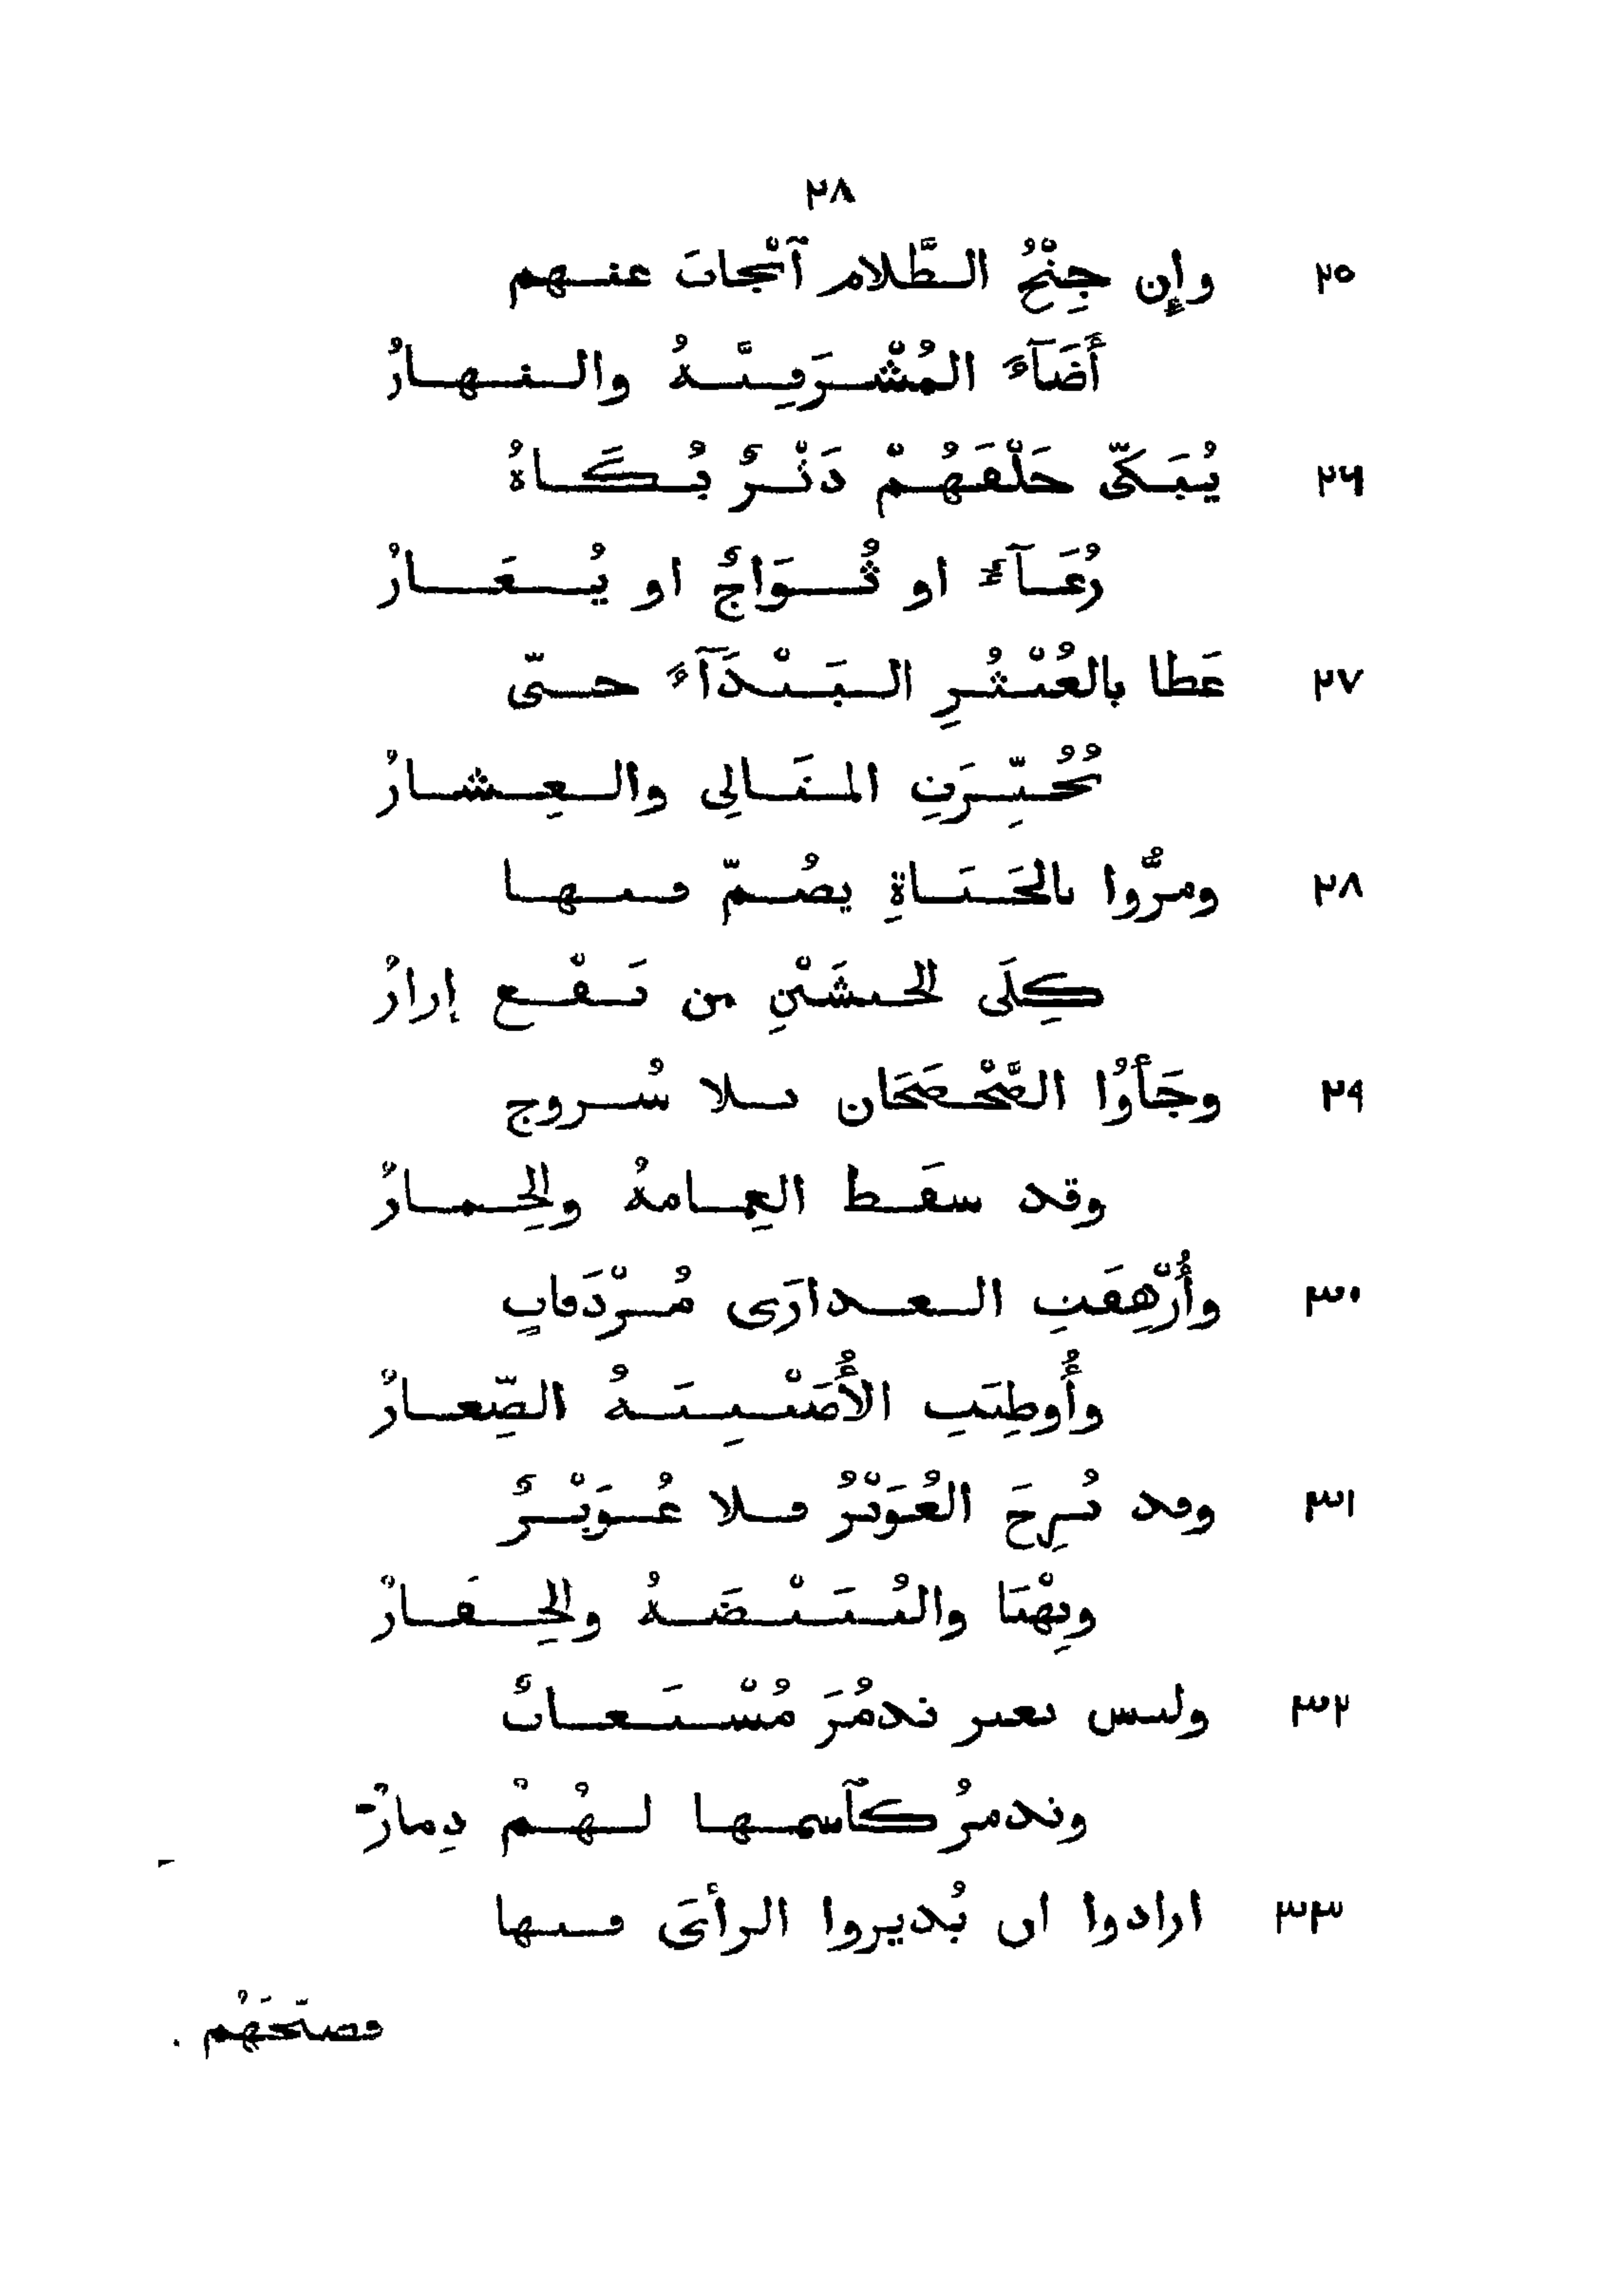 ٢٨
٢٥ وإن جِنْحُ الظَّلام آنْجابَ عنهم
أَضَآءَ المُشْرَفِيَّةُ والنهارُ
٢٦ يُبَكّى خَلْفَهُمْ دَثْرٌ بُكَاهُ
رُغَآءٌ او ثُوَاجٌ او يُعَارُ
٢٧ غَطا بالعُثْيُرِ البَيْدَآءَ حتّى
تُحُيِّرَتِ المتَالِى والعِشارُ
٢٨ ومرُّوا بالجَبَاةِ يضُمّ فيها
كِلَى الجيشَيْنِ من نَقْع إزارُ
٢٩ وجَأَوُا الصَّحْصَحَان بلا سُروج
وقد سقَط العِمامةُ والخِمارُ
٣٠ وأُرْهِقَتِ العذارَى مُرْدَفاتٍ
وأُوطِئَتِ الأُصَيْبِيَةُ الصِّغارُ
٣١ وقد نُزِحَ العُوَيْرُ فلا عُوَيْرٌ
ونِهْيَا والبُيَيْضَةُ والجِفَارُ
٣٢ وليس بغير تدمُرَ مُسْتَغاثٌ
وتدمرُ كآسمها لهُمْ دِمارُ
٣٣ ارادوا ان يُديروا الرأىَ فيها
فصبّحَهُم